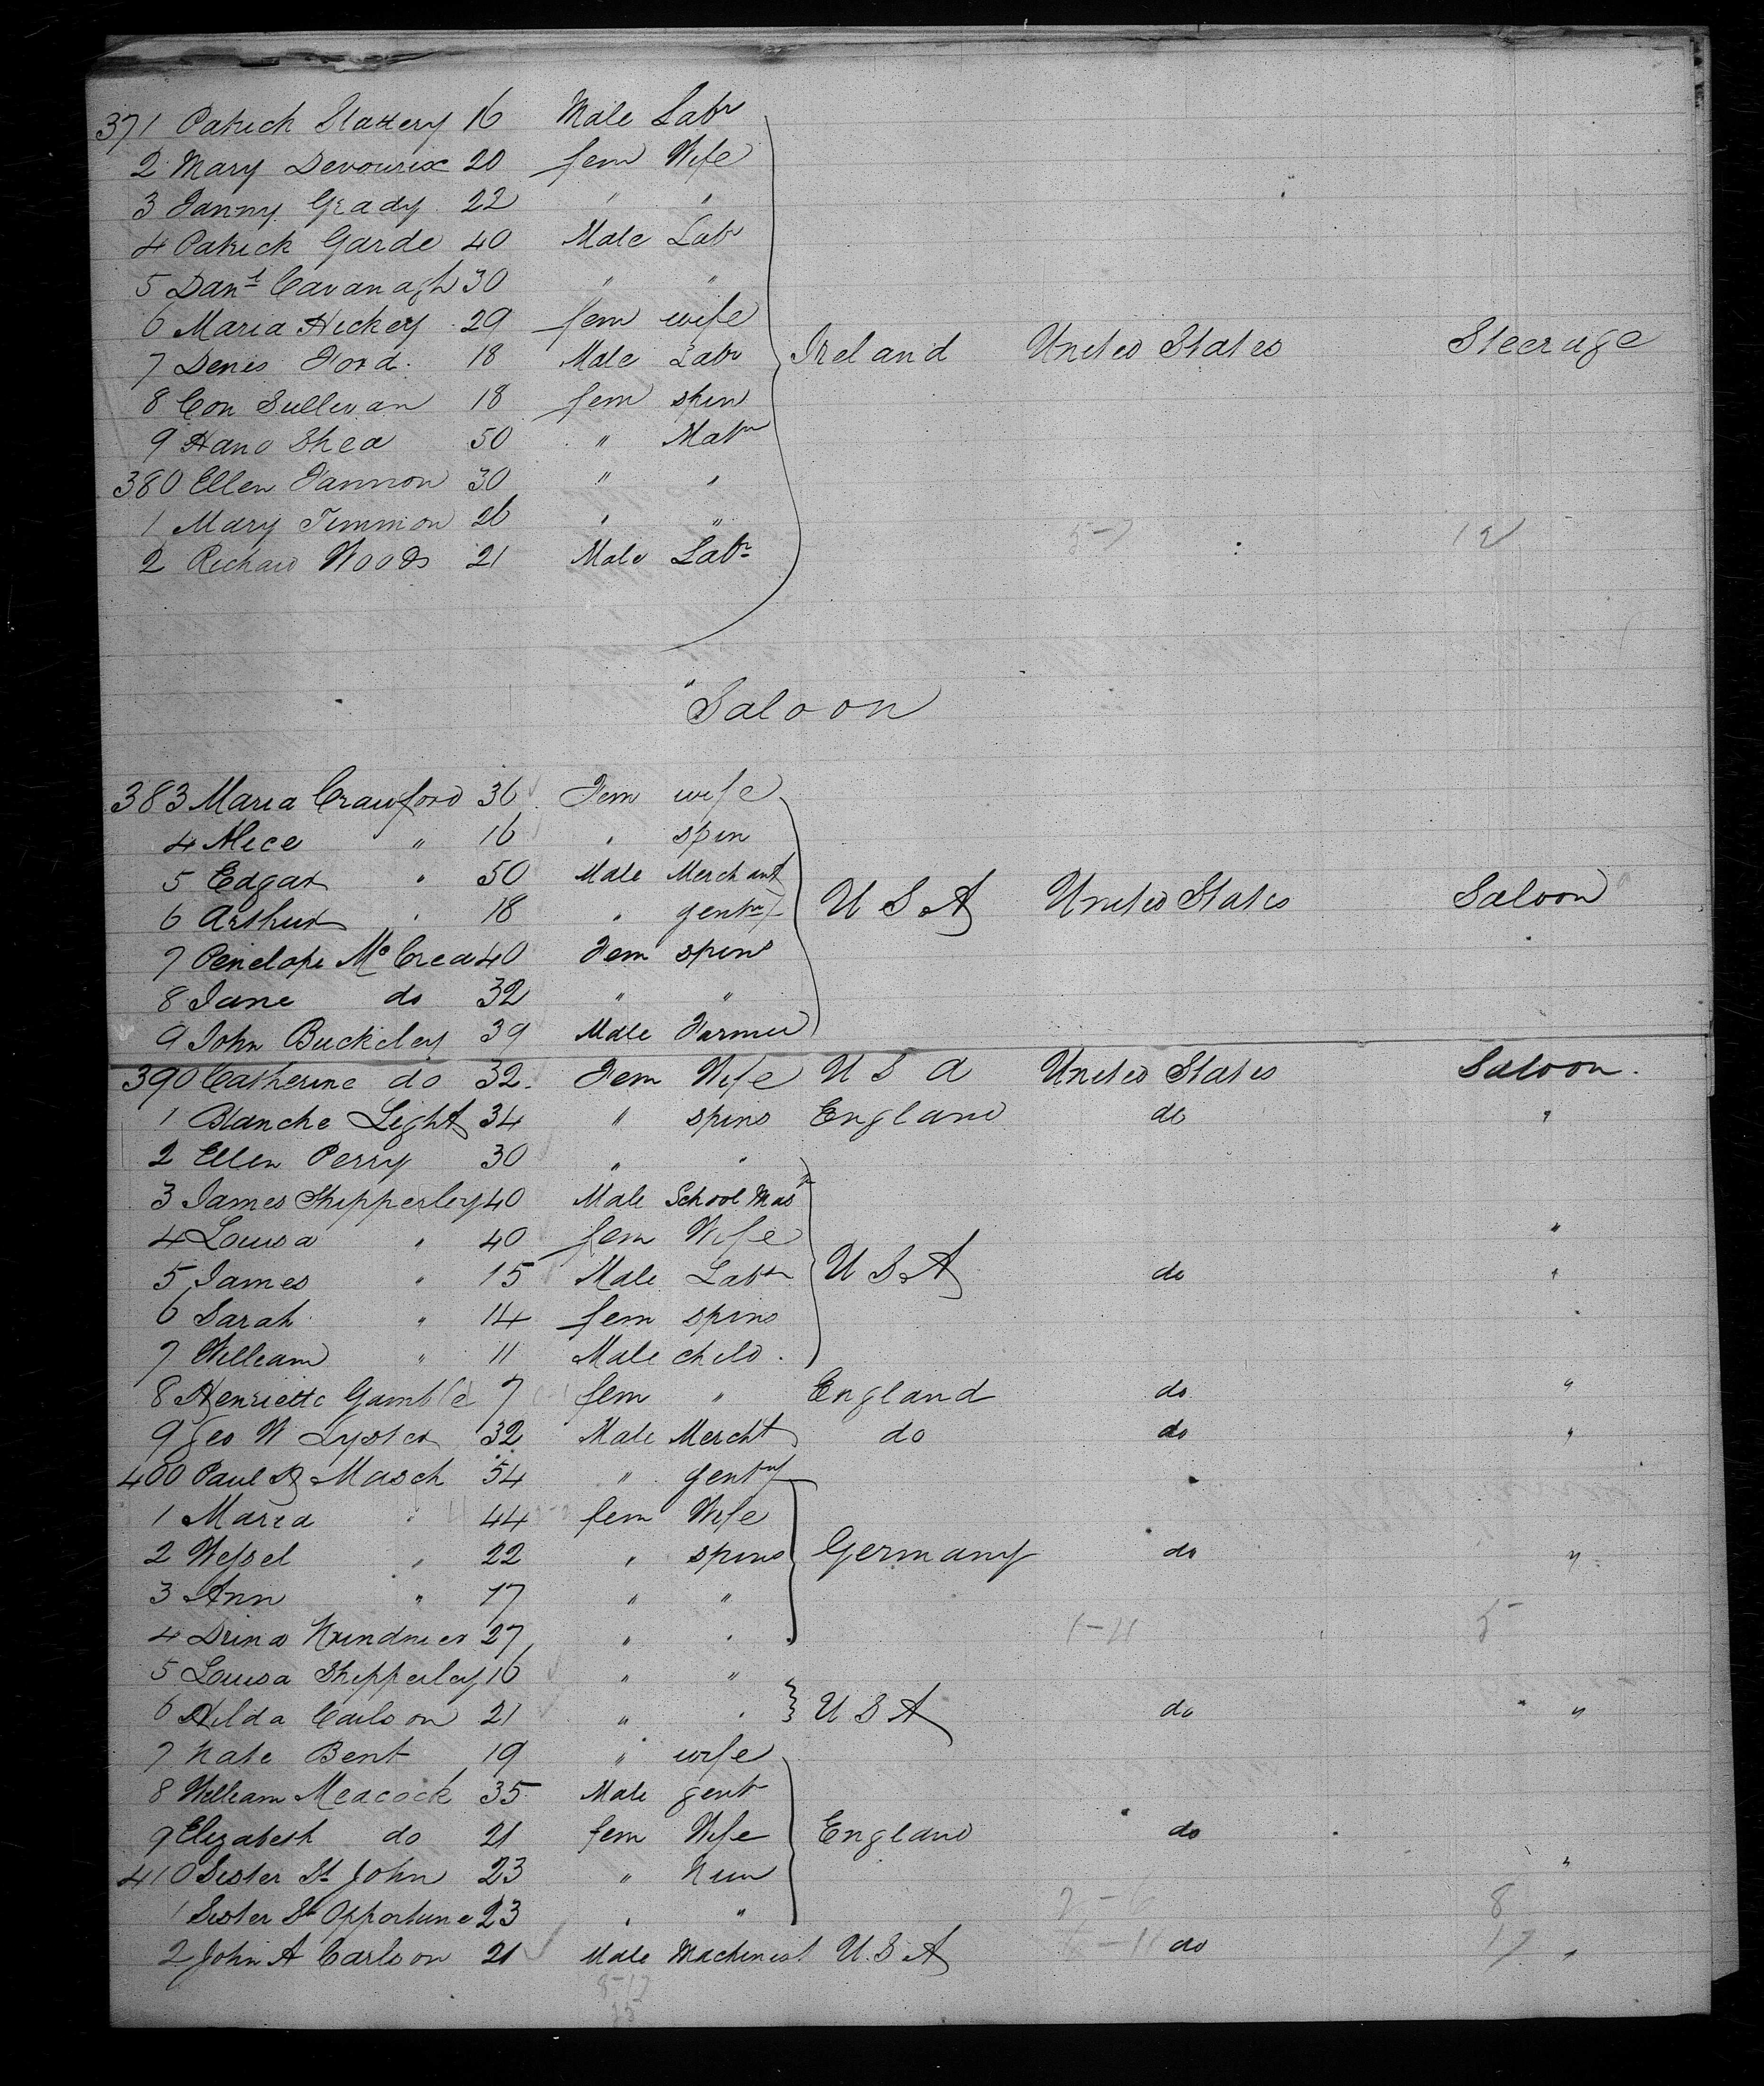 371 Patrick Slattery 16 Male Labr
2 Mary Devourix 20 fem Wife
3 Fanny Grady 22 " "
4 Patrick Garde 40 Male Labr
5 Danl Cavanagh 30 " "
6 Maria Hickey 29 fem wife
7 Denis Ford. 18 Male Labr Ireland United States Steerage
8 Con Sullivan 18 fem spin
9 Hano Shea 50 " Matn
380 Ellen Fannon 30 " "
1 Mary Timmon 26 " " 5-7 12
2 Richard Woods 21 Male Labr
Saloon
383 Maria Crawford 36 Fem wife
4 Alice " 16 " spin
5 Edgar " 50 Male Merchant
6 Arthur " 18 " gentn U S A United States Saloon
7 Penelope McCrea 40 Fem spins
8 Jane do 32 " "
9 John Buckeley 39 Male Farmer
390 Catherine do 32 Fem Wife U S A United States Saloon.
1 Blanche Light 34 " spins England do "
2 Ellen Perry 30 " "
3 James Shipperley 40 Male School Masr
4 Louisa " 40 fem Wife "
5 James " 15 Male Labr U S A do "
6 Sarah " 14 fem spins
7 William " 11 Male child.
8 Henrietta Gamble 7 fem " England do "
9 Geo W Lyster 32 Male Mercht do do "
400 Paul Masch 54 " gentn
1 Maria " 44 fem Wife
2 Wessel " 22 " spins Germany do "
3 Ann " 17 " "
4 27 " " 1-4 5
5 Louisa Shipperley 16 " "
6 Hilda Carlson 21 " " U S A do "
7 Kate Bent 19 " wife
8 William Meacock 35 Male gent
9 Elizabeth do 21 fem Wife England do
410 Sister St John 23 " Nun "
1 Sister St Opportune 23 " " 2-6 8
2 John A Carlson 21 Male Machinist U.S A do 17 "